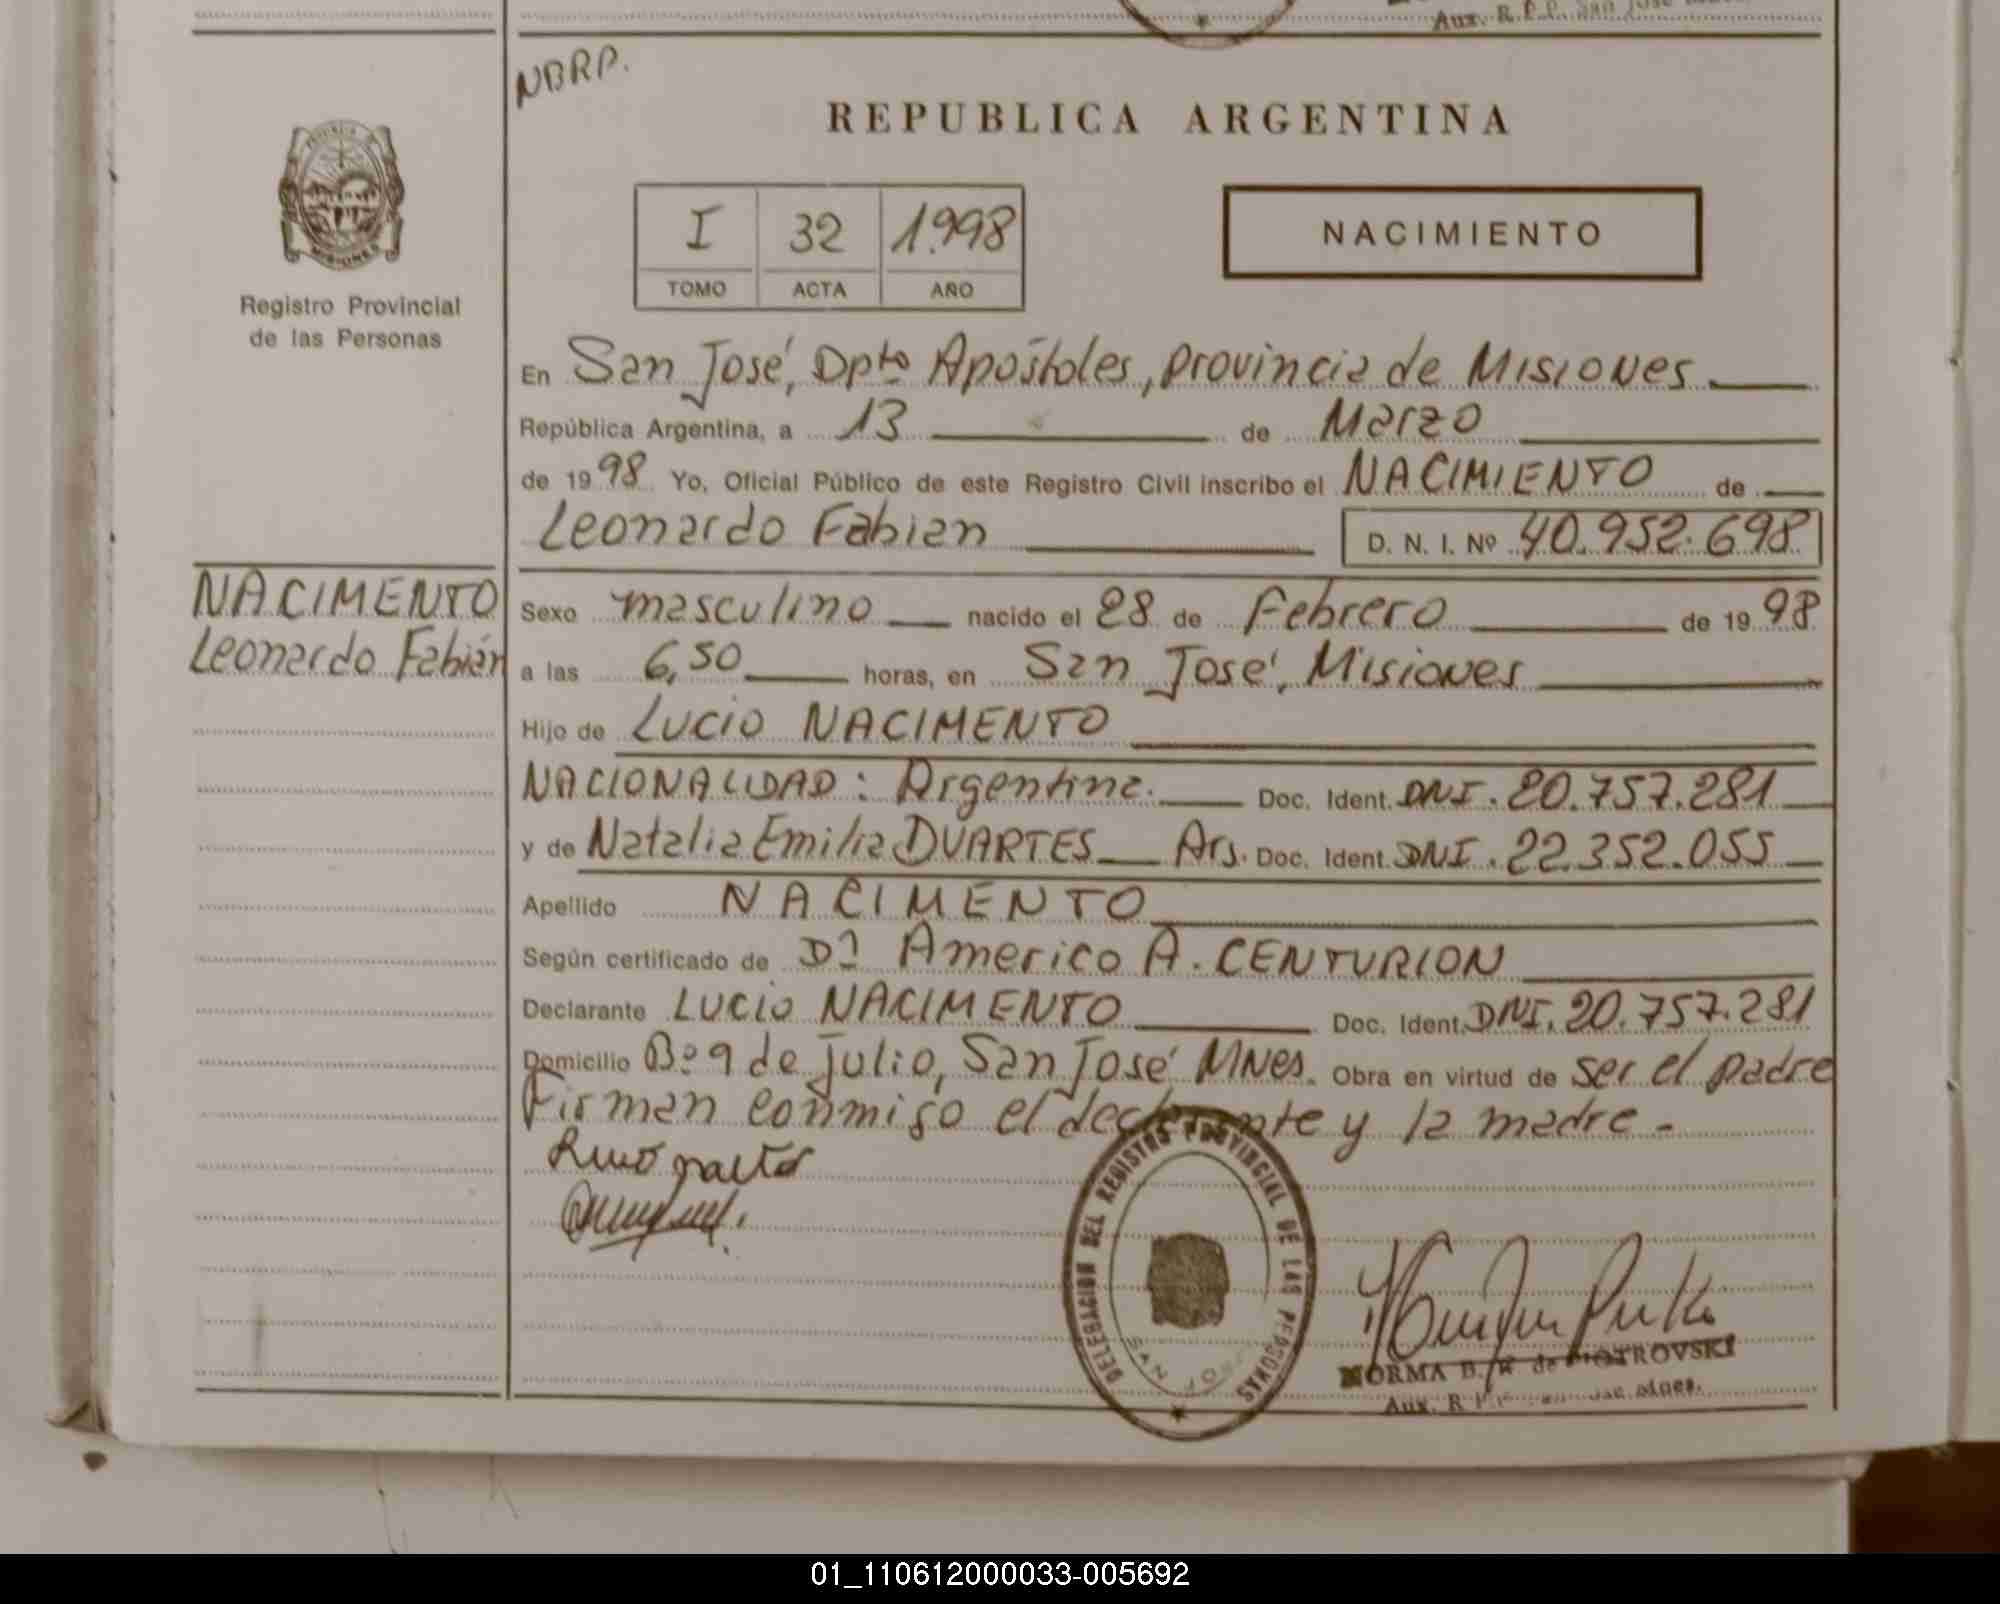 Aux. R.P.P. San José
NBRP.
REPUBLICA ARGENTINA
I 32 1.998
TOMO ACTA AÑO
NACIMIENTO
MISIONES
Registro Provincial
de las Personas
En San José, Dpto Apóstoles, provincia de Misiones
República Argentina, a 13 de Marzo
de 1998 Yo, Oficial Público de este Registro Civil inscribo el NACIMIENTO de
Leonardo Fabian D. N. I. Nº 40.952.698
NACIMENTO
Leonardo Fabián
Sexo masculino nacido el 28 de Febrero de 1998
a las 6,50 horas, en San José, Misiones
Hijo de Lucio NACIMENTO
NACIONALIDAD: Argentina. Doc. Ident. DNI. 20.757.281
y de Natalia Emilia DUARTES Arg. Doc. Ident. DNI. 22.352.055
Apellido NACIMENTO
Según certificado de Dr Americo A. CENTURION
Declarante LUCIO NACIMENTO Doc. Ident. DNI. 20.757.281
Domicilio Bº 9 de Julio, San José Mnes. Obra en virtud de ser el padre
Firman conmigo el declarante y la madre -
DELEGACION DEL REGISTRO PROVINCIAL DE LAS PERSONAS
SAN JOSE
NORMA B. K de PIOTROVSKI
Aux. R.P.P. San José Mnes.
01_110612000033-005692